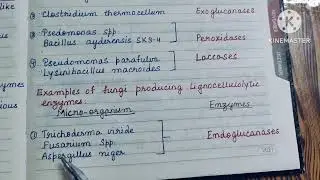 ② Clostridium thermocellum Exoglucanases
③ Psedomonas spp.
Bacillus ayderensis SKS-4 Peroxidases
④ Pseudomonas parafulva
Lysinibacillus macroides Laccases
Examples of fungi producing Lignocellulolytic
enzymes.
Micro-organism Enzymes
① Trichoderma viride
Fusarium Spp. Endoglucanases
Aspergillus niger
Made with
KINEMASTER